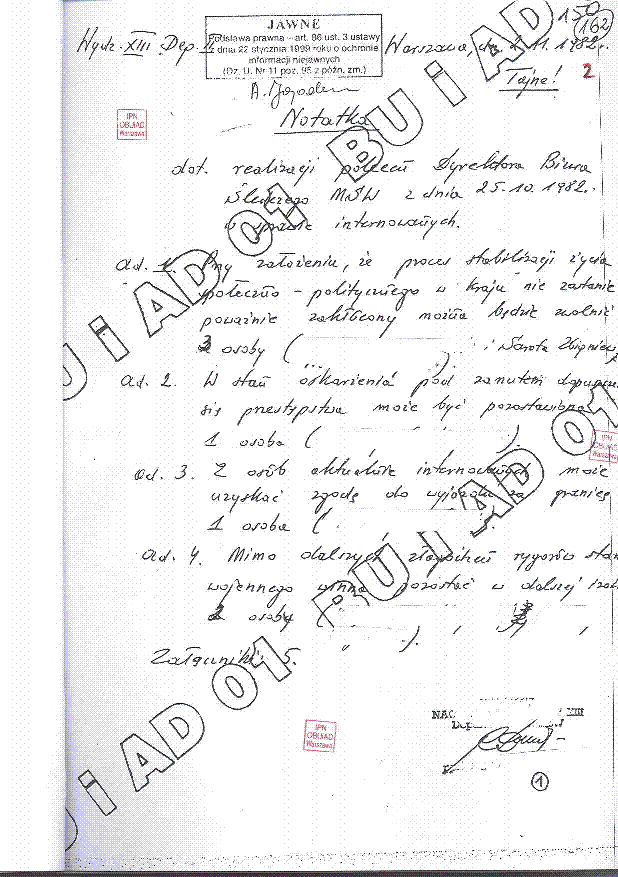 150
162
JAWNE
Podstawa prawna – art. 86 ust. 3 ustawy
z dnia 22 stycznia 1999 roku o ochronie
informacji niejawnych
(Dz. U. Nr 11 poz. 95 z późn. zm.)
Wydz. XIII Dep. Warszawa, 11. 1982r.
Tajne! 2
IPN
OBUiAD
Warszawa
Notatka
dot. realizacji poleceń Dyrektora Biura
Śledczego MSW z dnia 25.10.1982r.
w sprawie internowanych.
ad. 1. Przy założeniu, że proces stabilizacji życia
społeczno – politycznego w kraju nie zostanie
poważnie zakłócony można będzie zwolnić
osoby ( ) i Zbigniew
ad. 2. W stan oskarżenia pod zarzutem
się przestępstwa może być
1 osoba ( )
IPN
OBUiAD
Warszawa
ad. 3. Z osób aktualnie internowanych może
uzyskać zgodę do wyjazdu za granicę
1 osoba (
ad. 4. Mimo dalszych rygorów stanu
wojennego winna pozostać w dalszej
2 osoby (
" ).
Załączniki: 5.
IPN
OBUiAD
Warszawa
NAC XIII
1
BU i AD 01 BU i AD
BU i AD 01 BU i AD 01